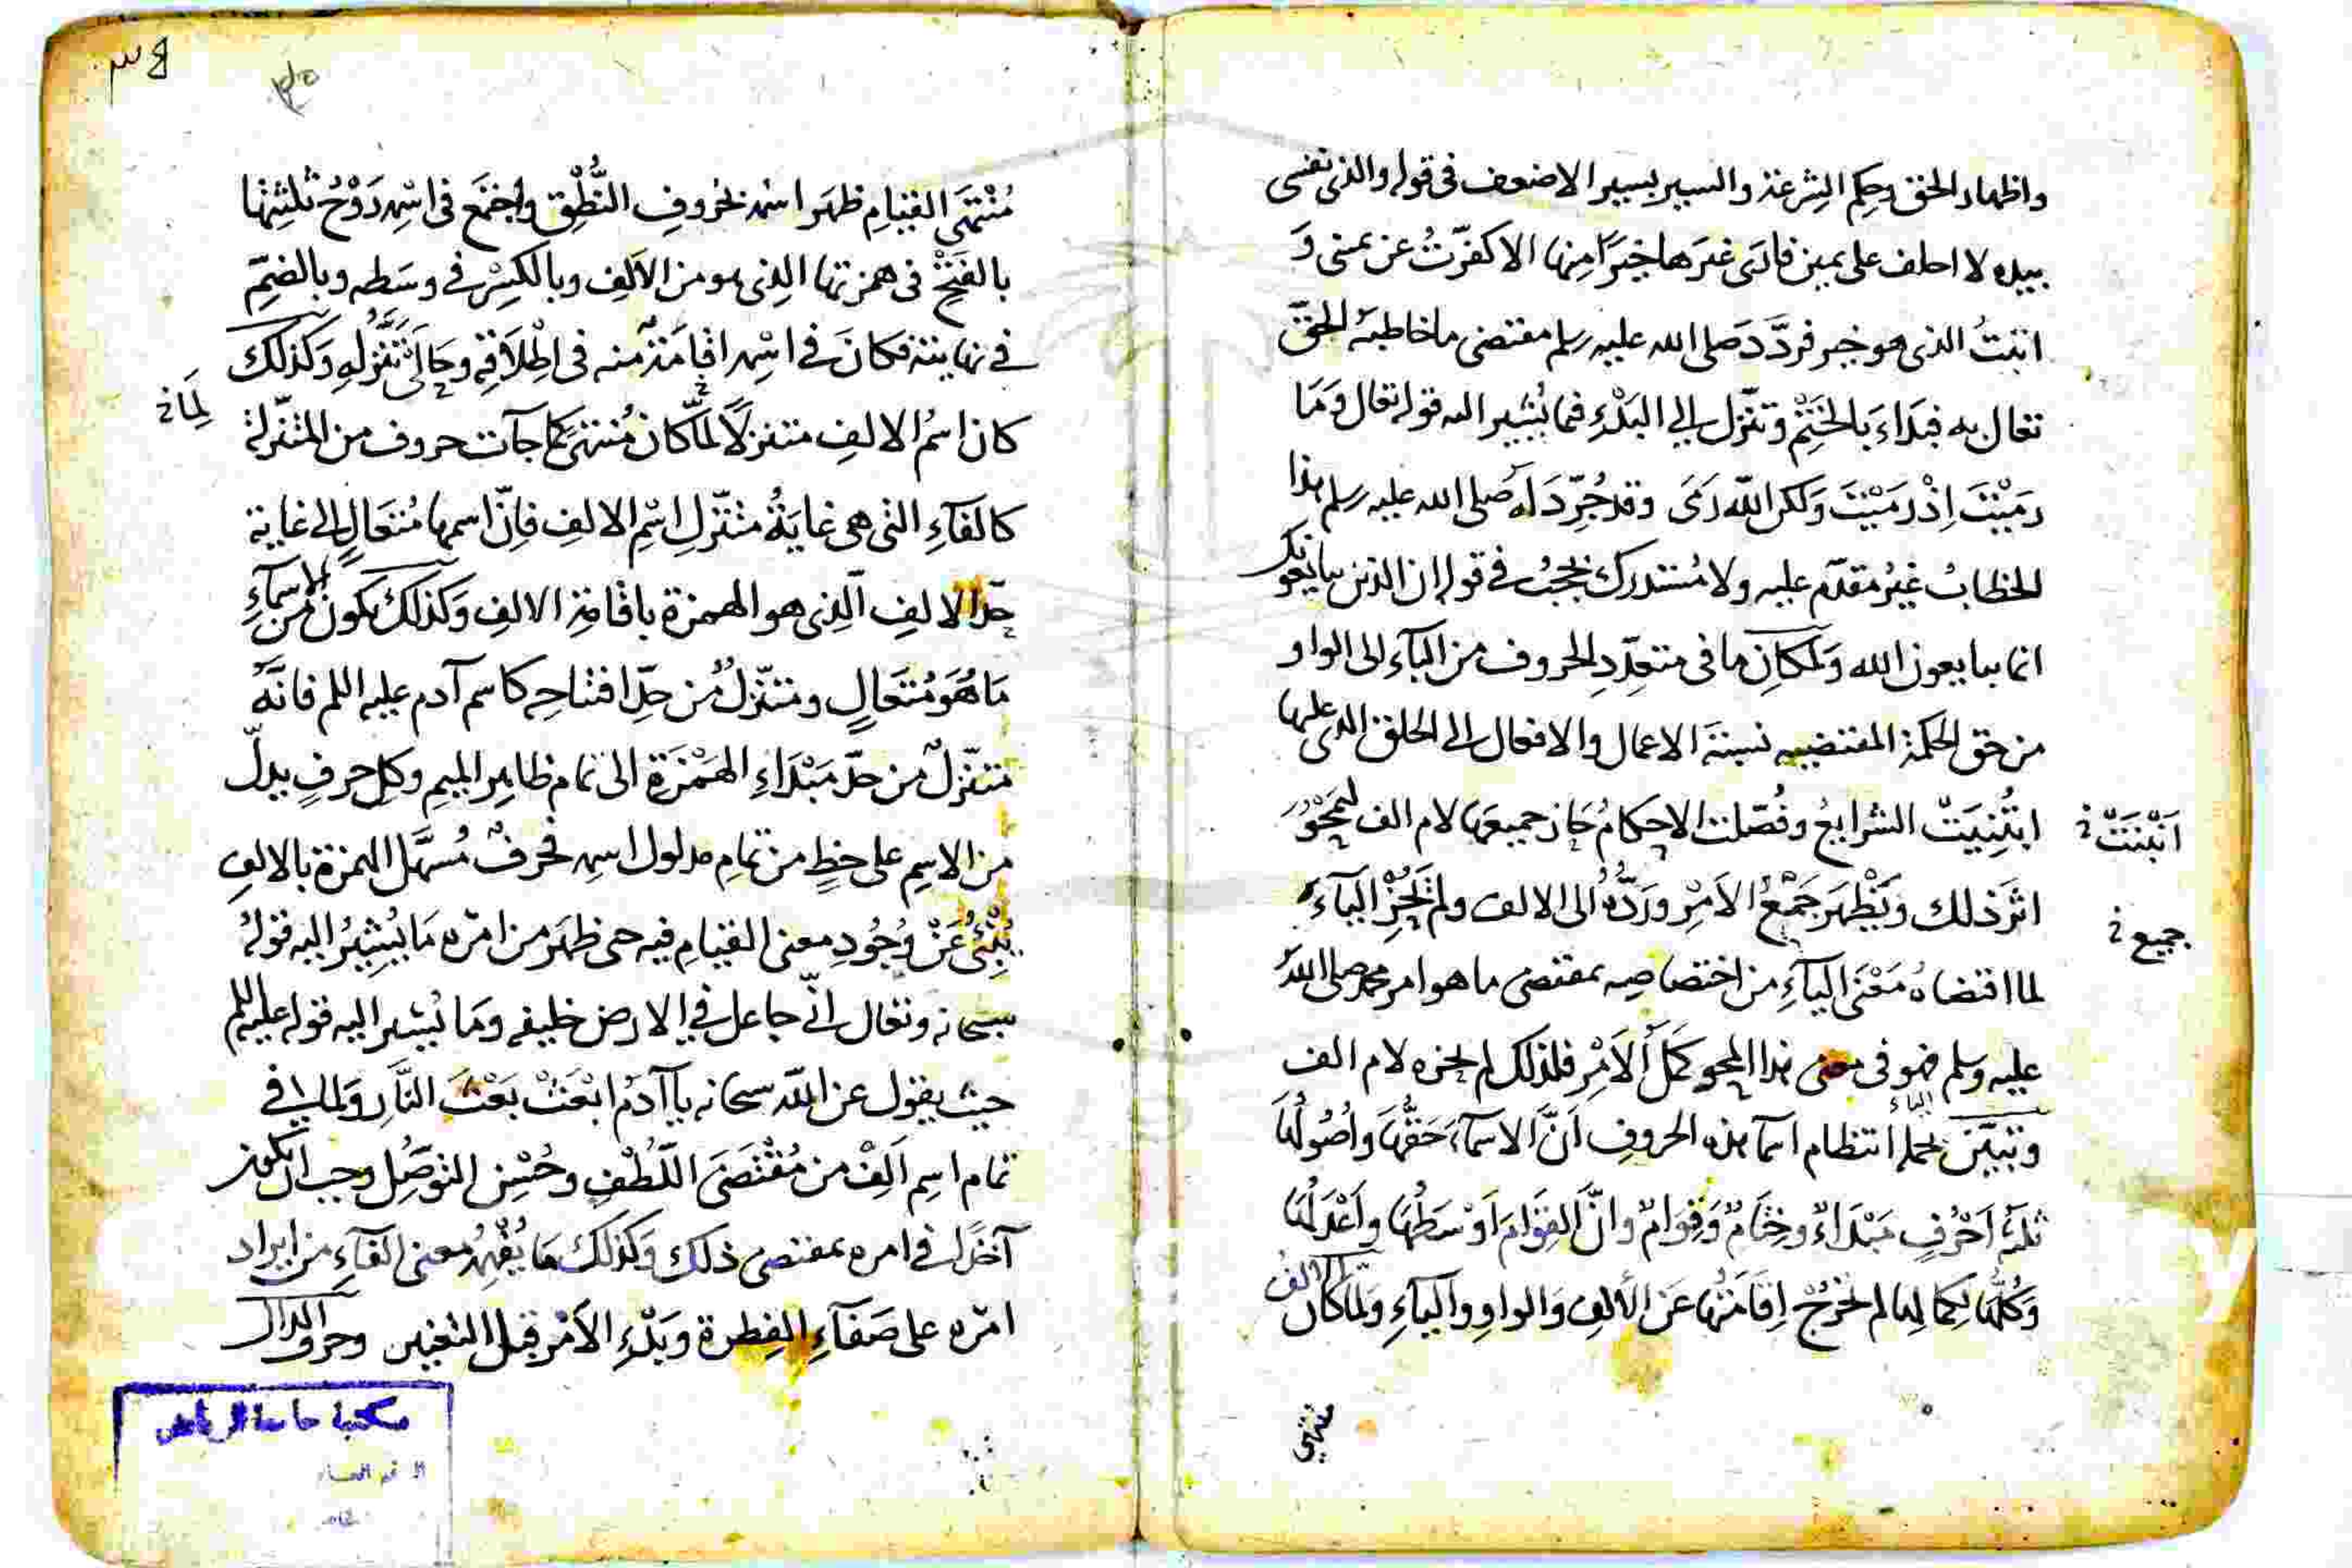 واظهار الحق وحكم الشرعة والسير بسير الاضعف في قوله والذي نفسي
بيده لا احلف على يمين فارى غيرها خيرًا منها الا كفّرتُ عن يميني وَ
اتيتُ الذي هو خير فردَّدَ صلى الله عليه وسلم مقتضى ما خاطبه الحقّ
تعالى به فبَدَاءَ بالخَتْمِ وتنزّل الى البَدْءِ فيما يُشير اليه قوله تعالى وَمَا
رمَيْتَ اِذْ رَمَيْتَ وَلكن اللّه رَمَى وقد جُرِّدَ له صَلى الله عليه وسلم هذا
الخطابُ غيرُ مقدّم عليه ولا مُستدرك بحجبُ في قوله ان الذين يبايعونك
انما يبايعون الله وَلمكانِ ما في متعدّدِ الحروف من الباءِ الى الواو
من حق الحكمة المقتضيه نسبَة الاعمال والافعال الى الخلق الذي عليها
ابتُنِيَتْ الشرايعُ وفُصّلت الاحكامُ حَاز جميعها لام الف ليَمْحُوَ
اَنْبَنَتْ
اثرَ ذلك ويَظْهرَ جَمْعُ الاَمْرِ ورَدُّهُ الى الالف ولم يَحُزِ الباءَ
جميع
لما اقتضاهُ مَعْنَى الباءِ من اختصاصِه بمقتضى ما هو امر محمد صلى اللهُ
عليه وسلم فهو في معنى هذا المحو كمَلَ الاَمْرِ فلذلك لم يحزه لام الف
الباء
وتبيّنَ بحمله انتظام اسما هذه الحروفِ اَنَّ الاسماءَ حَقُّهَا واُصُولُهَا
ثلثة اَحْرُفٍ مَبْدَاءٌ وخِتَامٌ وَقِوَامٌ وانَّ القِوَامَ اَوْسَطُهَا واَعْدَلُهَا
وَكُلُّهَا لِكمالِها لم تخرُجْ اِقَامَتُها عَن الأَلِفِ وَالواوِ والياءِ وَلمّا كان الفُ
منتهى
مُنْتَهَى القيَامِ ظهَر اسْمه لحُروفِ النُّطْقِ واجْتمَع في اسْمِه رَوْحُ ثلثتها
بالفَتْحِ في همزتها الذِى هو من الاَلِف وبالكسِرْ في وسَطه وبالضمِّ
في نهايته فكانَ في اسْمِه اقامَتهُ منه في اطْلاَقِهِ وحَالَتى تَنَزُّلِهِ وَكذلكَ
لِمَا
كان اسمُ الالفِ متنزلاً لمَّا كان مُنتهىً كما جآت حروف من المتنزّلة
كالفاءِ التى هى غايَةُ مُتنزّلِ اِسْمِ الالفِ فاِنّ اسمها مُتعَالٍ الى غاية
حَدّ الالفِ الّذِى هو الهمزة باقامَةِ الالفِ وَكذلكَ يكون من الاسماءِ
مَا هُوَ مُتعَالٍ ومتنزّلٌ من حَدِّ افتتاحِه كاسم آدم عليه السلم فانَّهُ
متنزّلٌ من حدّ مَبْدَاءِ الهَمْزَةِ الى تمام ظاهِرِ الميمِ وكل حرفٍ يدلّ
من الاسِم على حَظٍ من تمام مدلول اسمِه فحرفٌ مُسهَّل الهمزة بالالفِ
يُنْبِئُ عَنْ وُجُودِ معنى القيامِ فيه حتى ظهَر من امْرِه مَا يُشِيْرُ اليه قولهُ
سبحانه وتعالى انّي جاعل في الارض خليفه ومَا يُشير اليه قوله عليه السلم
حيث يقول عن اللّه سبحانه يا آدَمُ ابْعَثْ بَعْثَ النَّارِ وَلما في
تمام اسِم اَلِفْ من مُقْتضَى اللّطْفِ وحُسْنِ التوصُّلِ وجب ان يكون
آخرًا في امره بمقتضى ذلك وَكذلكَ مَا يُفْهِمُ معنى الفاءِ من ايراد
امْرِه على صَفاءِ الفِطرة وبَدْءِ الاَمْرِ قبل التغيير وحرف الدال
مكتبة جامعة الرياض